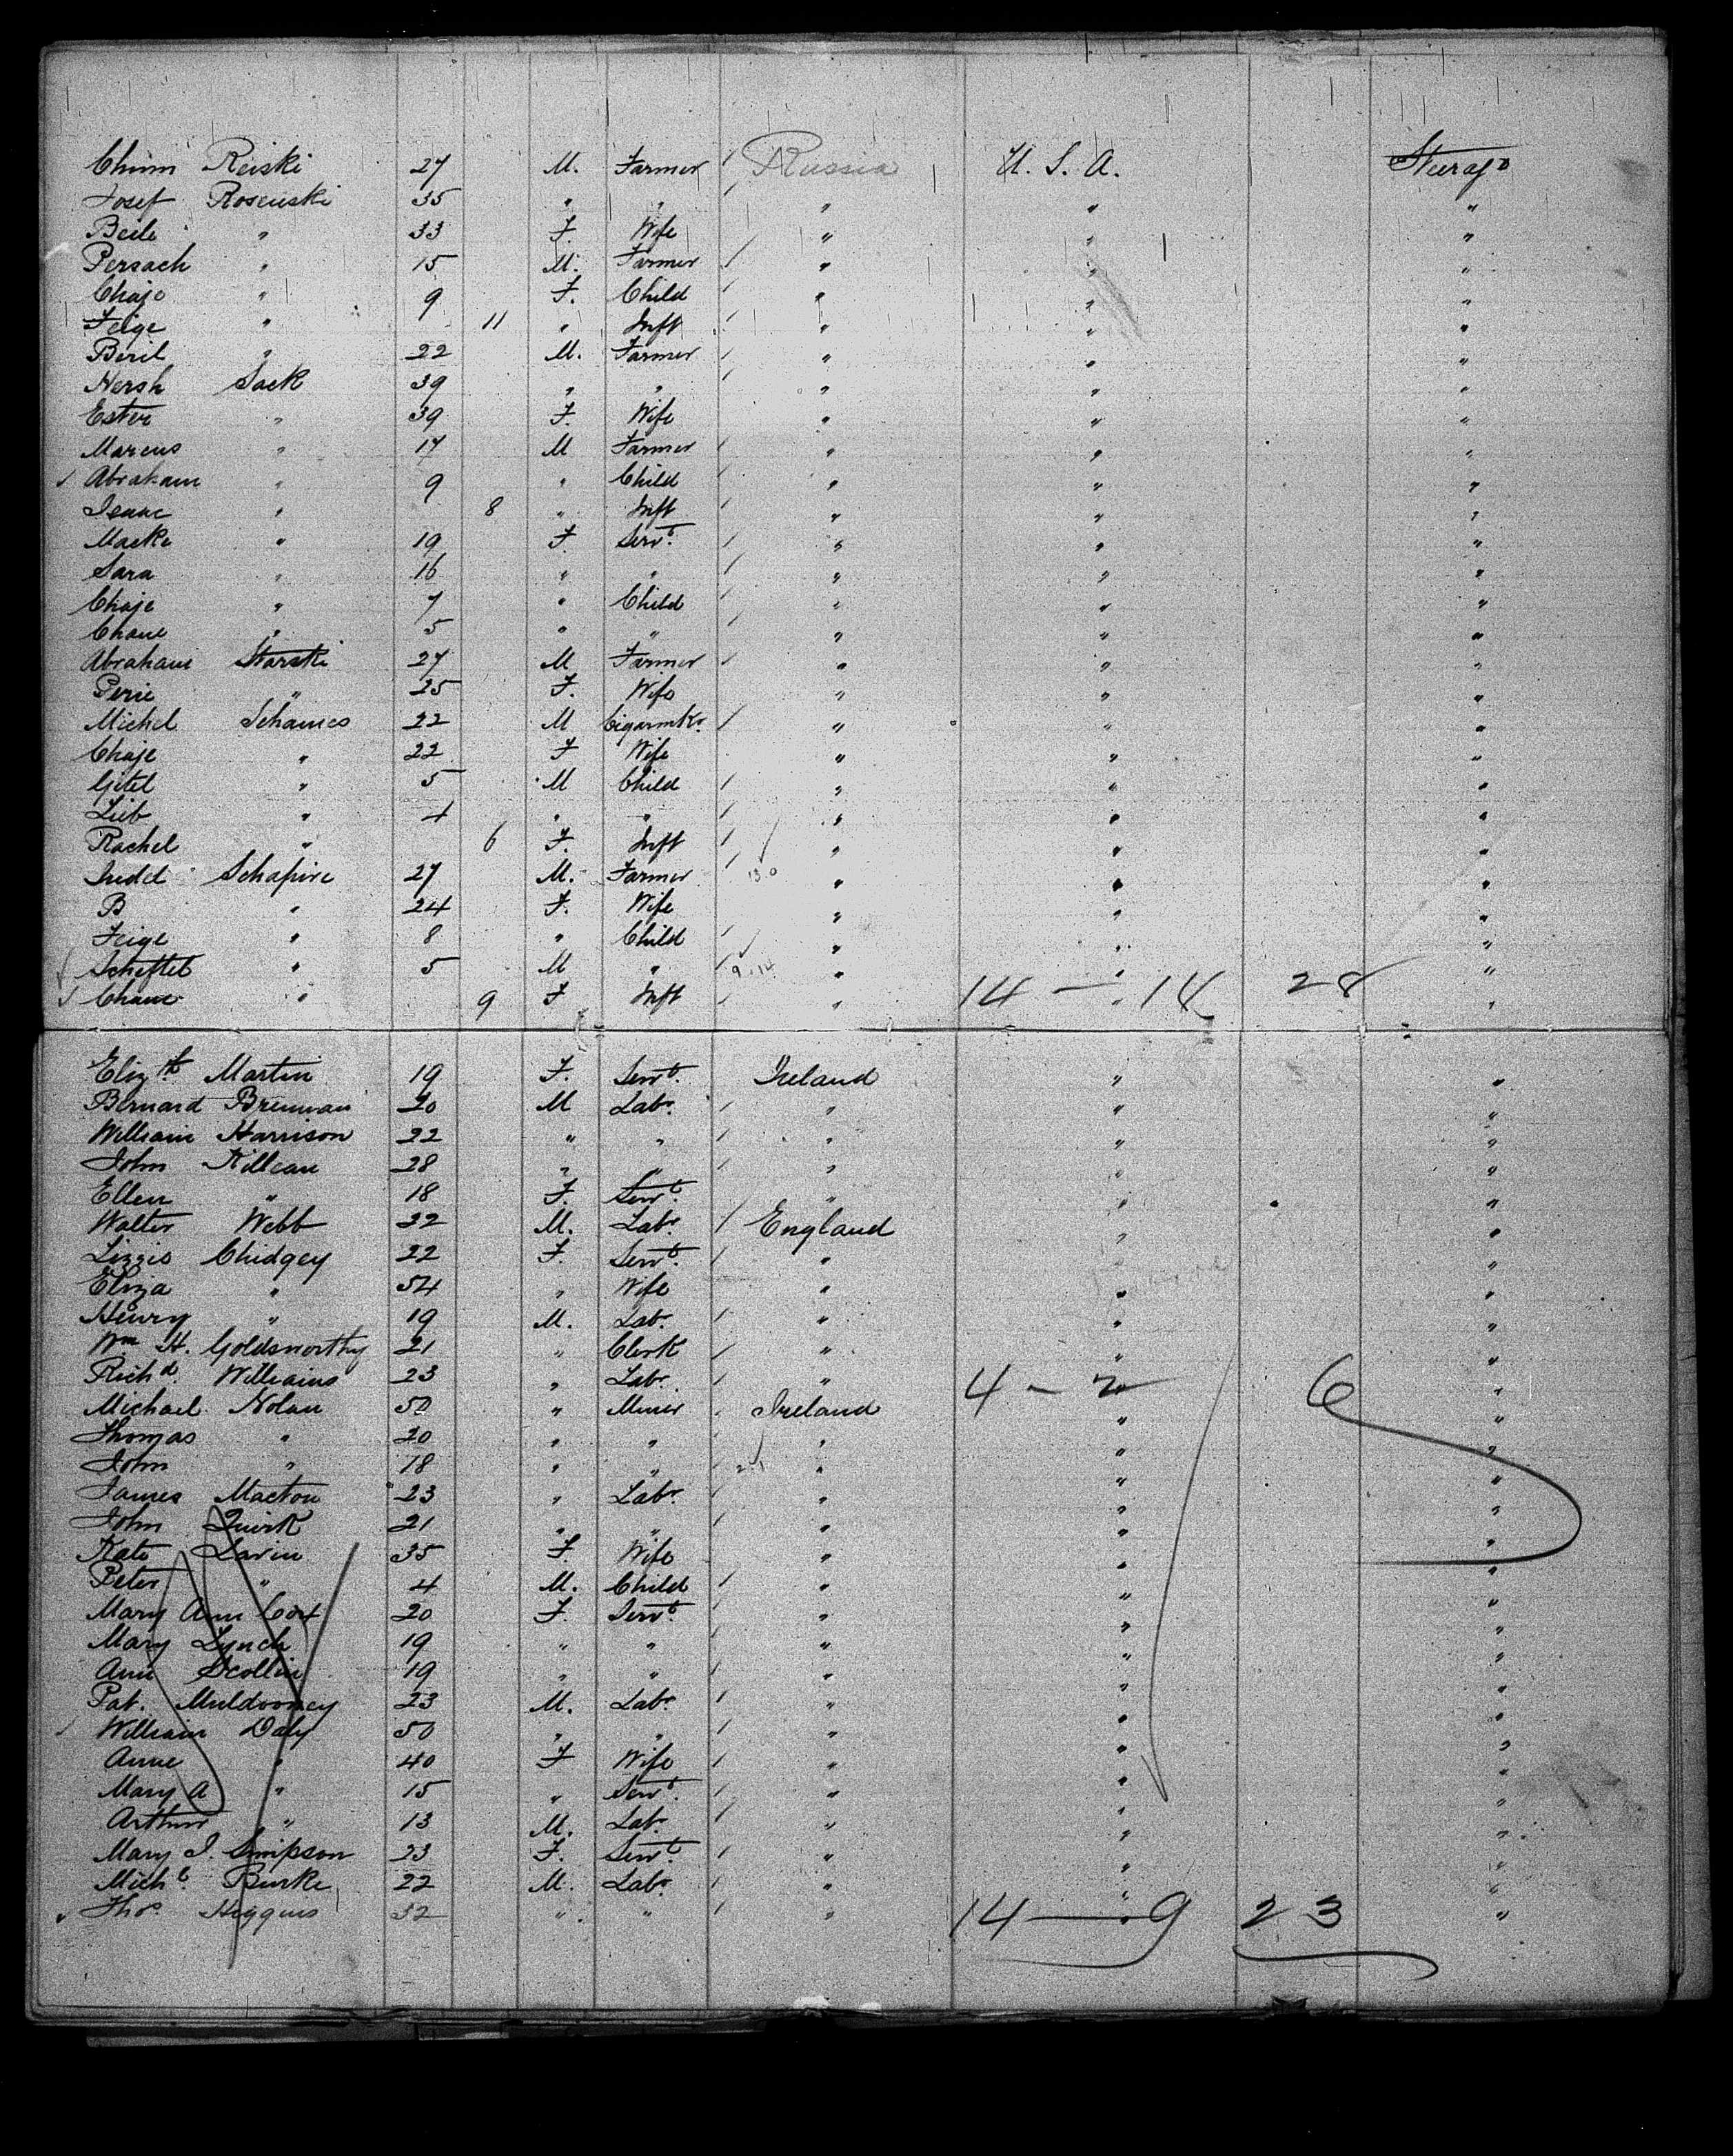 Chim Reiski 27 M. Farmer / Russia U. S. A. Steerage
Josef Rosenski 35 " " " " "
Beile " 33 F. Wife " " "
Persach " 15 M. Farmer / " " "
Chaje " 9 F. Child / " " "
Feige " 11 " Inft / " " "
Beril " 22 M. Farmer / " " "
Hersh Sack 39 " " / " " "
Ester " 39 F. Wife " " "
Marcus " 17 M Farmer / " " "
✓ Abraham " 9 " Child / " " "
Isaac " 8 " Inft / " " "
Macke " 19 F. Servt. / " " "
Sara " 16 " " / " " "
Chaje " 7 " Child / " " "
Chane " 5 " " / " " "
Abraham Starski 27 M Farmer / " " "
Perie " 25 F. Wife " " "
Michel Schames 22 M Cigarmkr. / " " "
Chaje " 22 F Wife " " "
Gitel " 5 M Child / " " "
Lieb " 4 " " / " " "
Rachel " 6 F. Inft / " " "
Judel Schapire 27 M. Farmer / " " "
B " 24 F. Wife " " "
Feige " 8 " Child / " " "
✓ Scheftel " 5 M " / 9.14 " " "
✓ Chane " 9 F Inft / " 14 — 14 28 "
Elizth. Martin 19 F. Servt. Ireland " "
Bernard Brennan 20 M Labr. / " " "
William Harrison 22 " " / " " "
John Killean 28 " " / " " "
Ellen " 18 F. Servt. " " "
Walter Webb 22 M. Labr. / England " "
Lizzie Chidgey 22 F. Servt. / " " "
Eliza " 54 " Wife " " "
Henry " 19 M. Labr. / " " "
Wm H. Goldsworthy 21 " Clerk / " " "
Richd. Williams 23 " Labr. / " 4 - 2 6 "
Michael Nolan 50 " Miner / Ireland " "
Thomas " 20 " " / " " "
John " 18 " " / " " "
James Macton 23 " Labr. / " " "
John Quirk 21 " " / " " "
Kate Lavin 35 F. Wife " " "
Peter " 4 M. Child / " " "
Mary Ann Cox 20 F. Servt. / " " "
Mary Lynch 19 " " / " " "
Ann Scollin 19 " " / " " "
Pat. Muldooney 23 M. Labr. / " " "
✓ William Daly 50 " " / " " "
Anne " 40 F Wife / " " "
Mary A " 15 " Servt. / " " "
Arthur " 13 M. Labr. / " " "
Mary J. Simpson 23 F. Servt. / " " "
Michl. Burke 22 M. Labr. / " " "
✓ Thos. Higgins 32 " " / " 14 — 9 23 "